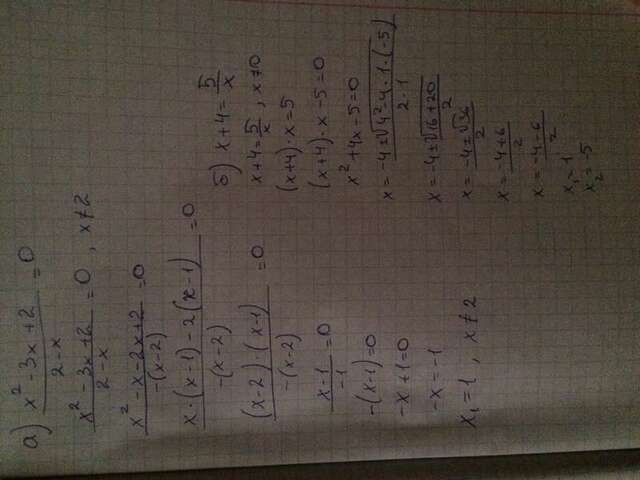 а) (x² - 3x + 2)/(2 - x) = 0
(x² - 3x + 2)/(2 - x) = 0 , x ≠ 2
(x² - x - 2x + 2)/(-(x-2)) = 0
(x·(x-1) - 2(x-1))/(-(x-2)) = 0
((x-2)·(x-1))/(-(x-2)) = 0
(x-1)/(-1) = 0
-(x-1) = 0
-x + 1 = 0
-x = -1
x₁ = 1 , x ≠ 2
б) x + 4 = 5/x
x + 4 = 5/x , x ≠ 0
(x+4)·x = 5
(x+4)·x - 5 = 0
x² + 4x - 5 = 0
x = (-4 ± √(4² - 4·1·(-5)))/(2·1)
x = (-4 ± √(16 + 20))/2
x = (-4 ± √36)/2
x = (-4 + 6)/2
x = (-4 - 6)/2
x₁ = 1
x₂ = -5